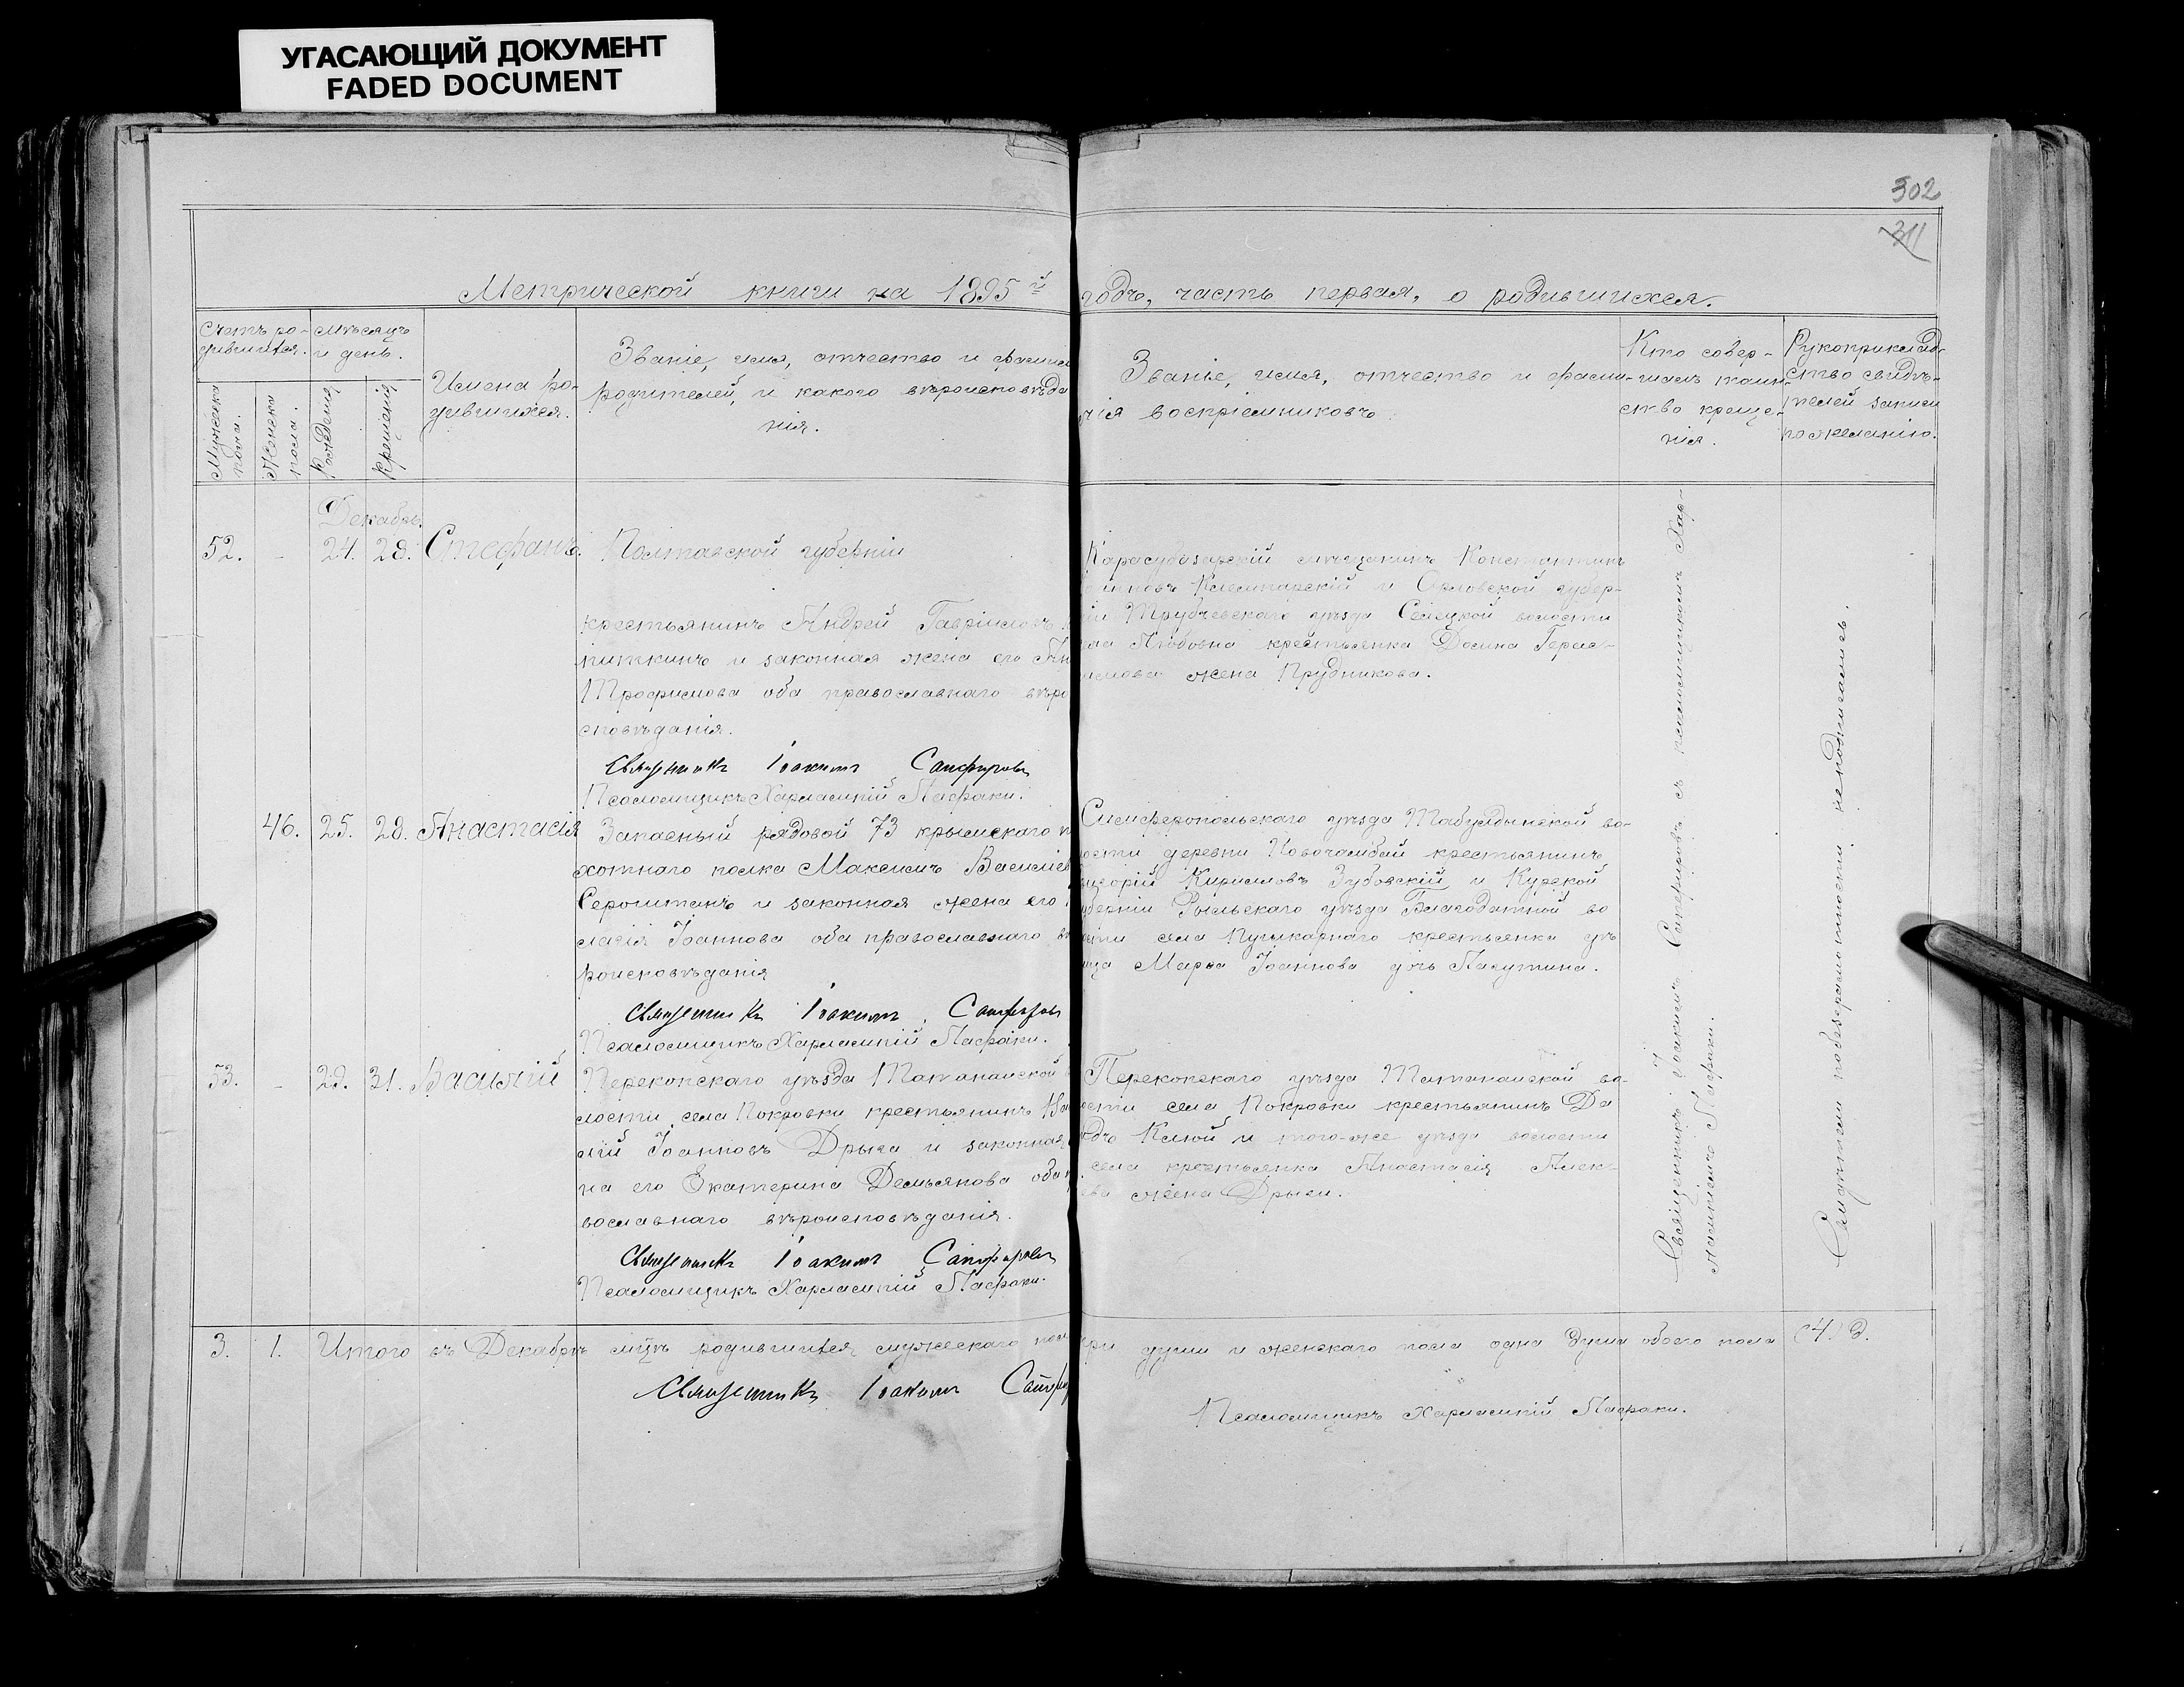 УГАСАЮЩИЙ ДОКУМЕНТ
FADED DOCUMENT
302
311
Метрической книги на 1895й годъ, часть первая, о родившихся.
Счетъ родившихся.
Мѣсяцъ и день.
Мужеска пола.
Женска пола.
Рожденія
Крещенія
Имена родившихся.
Званіе, имя, отчество и фамилі
родителей, и какого вѣроисповѣда
нія.
Званіе, имя, отчество и фами-
лія воспріемниковъ
Кто совер-
шалъ таин-
ство креще-
нія.
Рукоприклад-
ство свидѣ-
телей записи
по желанію.
Декабрь.
52. - 24. 28. Стефанъ.
Полтавской губерніи
крестьянинъ Андрей Гавріиловъ
питкинъ и законная жена его Ан
Трофимова оба православнаго вѣро
сповѣданія.
Священникъ Іоакимъ Сапфировъ
Псаломщикъ Харлампій Пасхаки.
Карасубазарскій мѣщанинъ Константинъ
и Орловской губер-
ніи Трубчевскаго уѣзда Селецкой волости
крестьянка Домна Герас-
имова жена Прудникова.
46. 25. 28. Анастасія
Запасный рядовой 73 крымскаго п
хотнаго полка Максимъ Василіев
Сероштанъ и законная жена его
лагія Іоаннова оба православнаго вѣ
роисповѣданія
Священникъ Іоакимъ Сапфировъ
Псаломщикъ Харлампій Пасхаки.
Симферопольскаго уѣзда Табулдынской во-
лости деревни Новочамбай крестьянинъ
Григорій Кирилловъ Зубовскій и Курской
губерніи Рыльскаго уѣзда Благодатной во
лости села Пушкарнаго крестьянка дѣ
вица Марѳа Іоаннова дочь Пасутина.
53. - 29. 31. Василій
Перекопскаго уѣзда Татанайской
лости села Покровки крестьянинъ Ва
лій Іоанновъ Дрыга и законная
на его Екатерина Демьянова оба п
вославнаго вѣроисповѣданія.
Священникъ Іоакимъ Сапфировъ
Псаломщикъ Харлампій Пасхаки.
Перекопскаго уѣзда Татанайской во-
лости села Покровки крестьянинъ Да
и того-же уѣзда волости
села крестьянка Анастасія Алек-
ева жена Дрыги.
Священникъ Іоакимъ Сапфировъ съ псаломщикомъ Хар-
лампіемъ Пасхаки.
Свидѣтели по безграмотности неподписались.
3. 1. Итого въ Декабрѣ мцѣ родившихся мужескаго пола три души и женскаго пола одна душа обоего пола (4) д.
Священникъ Іоакимъ Сапфир
Псаломщикъ Харлампій Пасхаки.